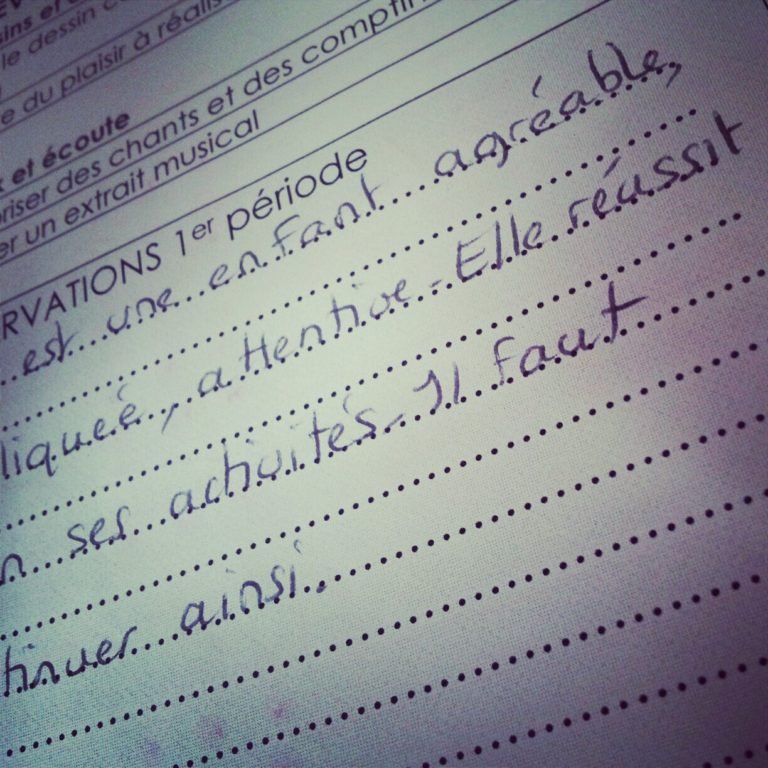 le dessin
e du plaisir à réalis
et écoute
riser des chants et des comptin
er un extrait musical
RVATIONS 1er période
est une enfant agréable,
liqueé, attentive. Elle réussit
n ses activités. Il faut
tinuer ainsi.